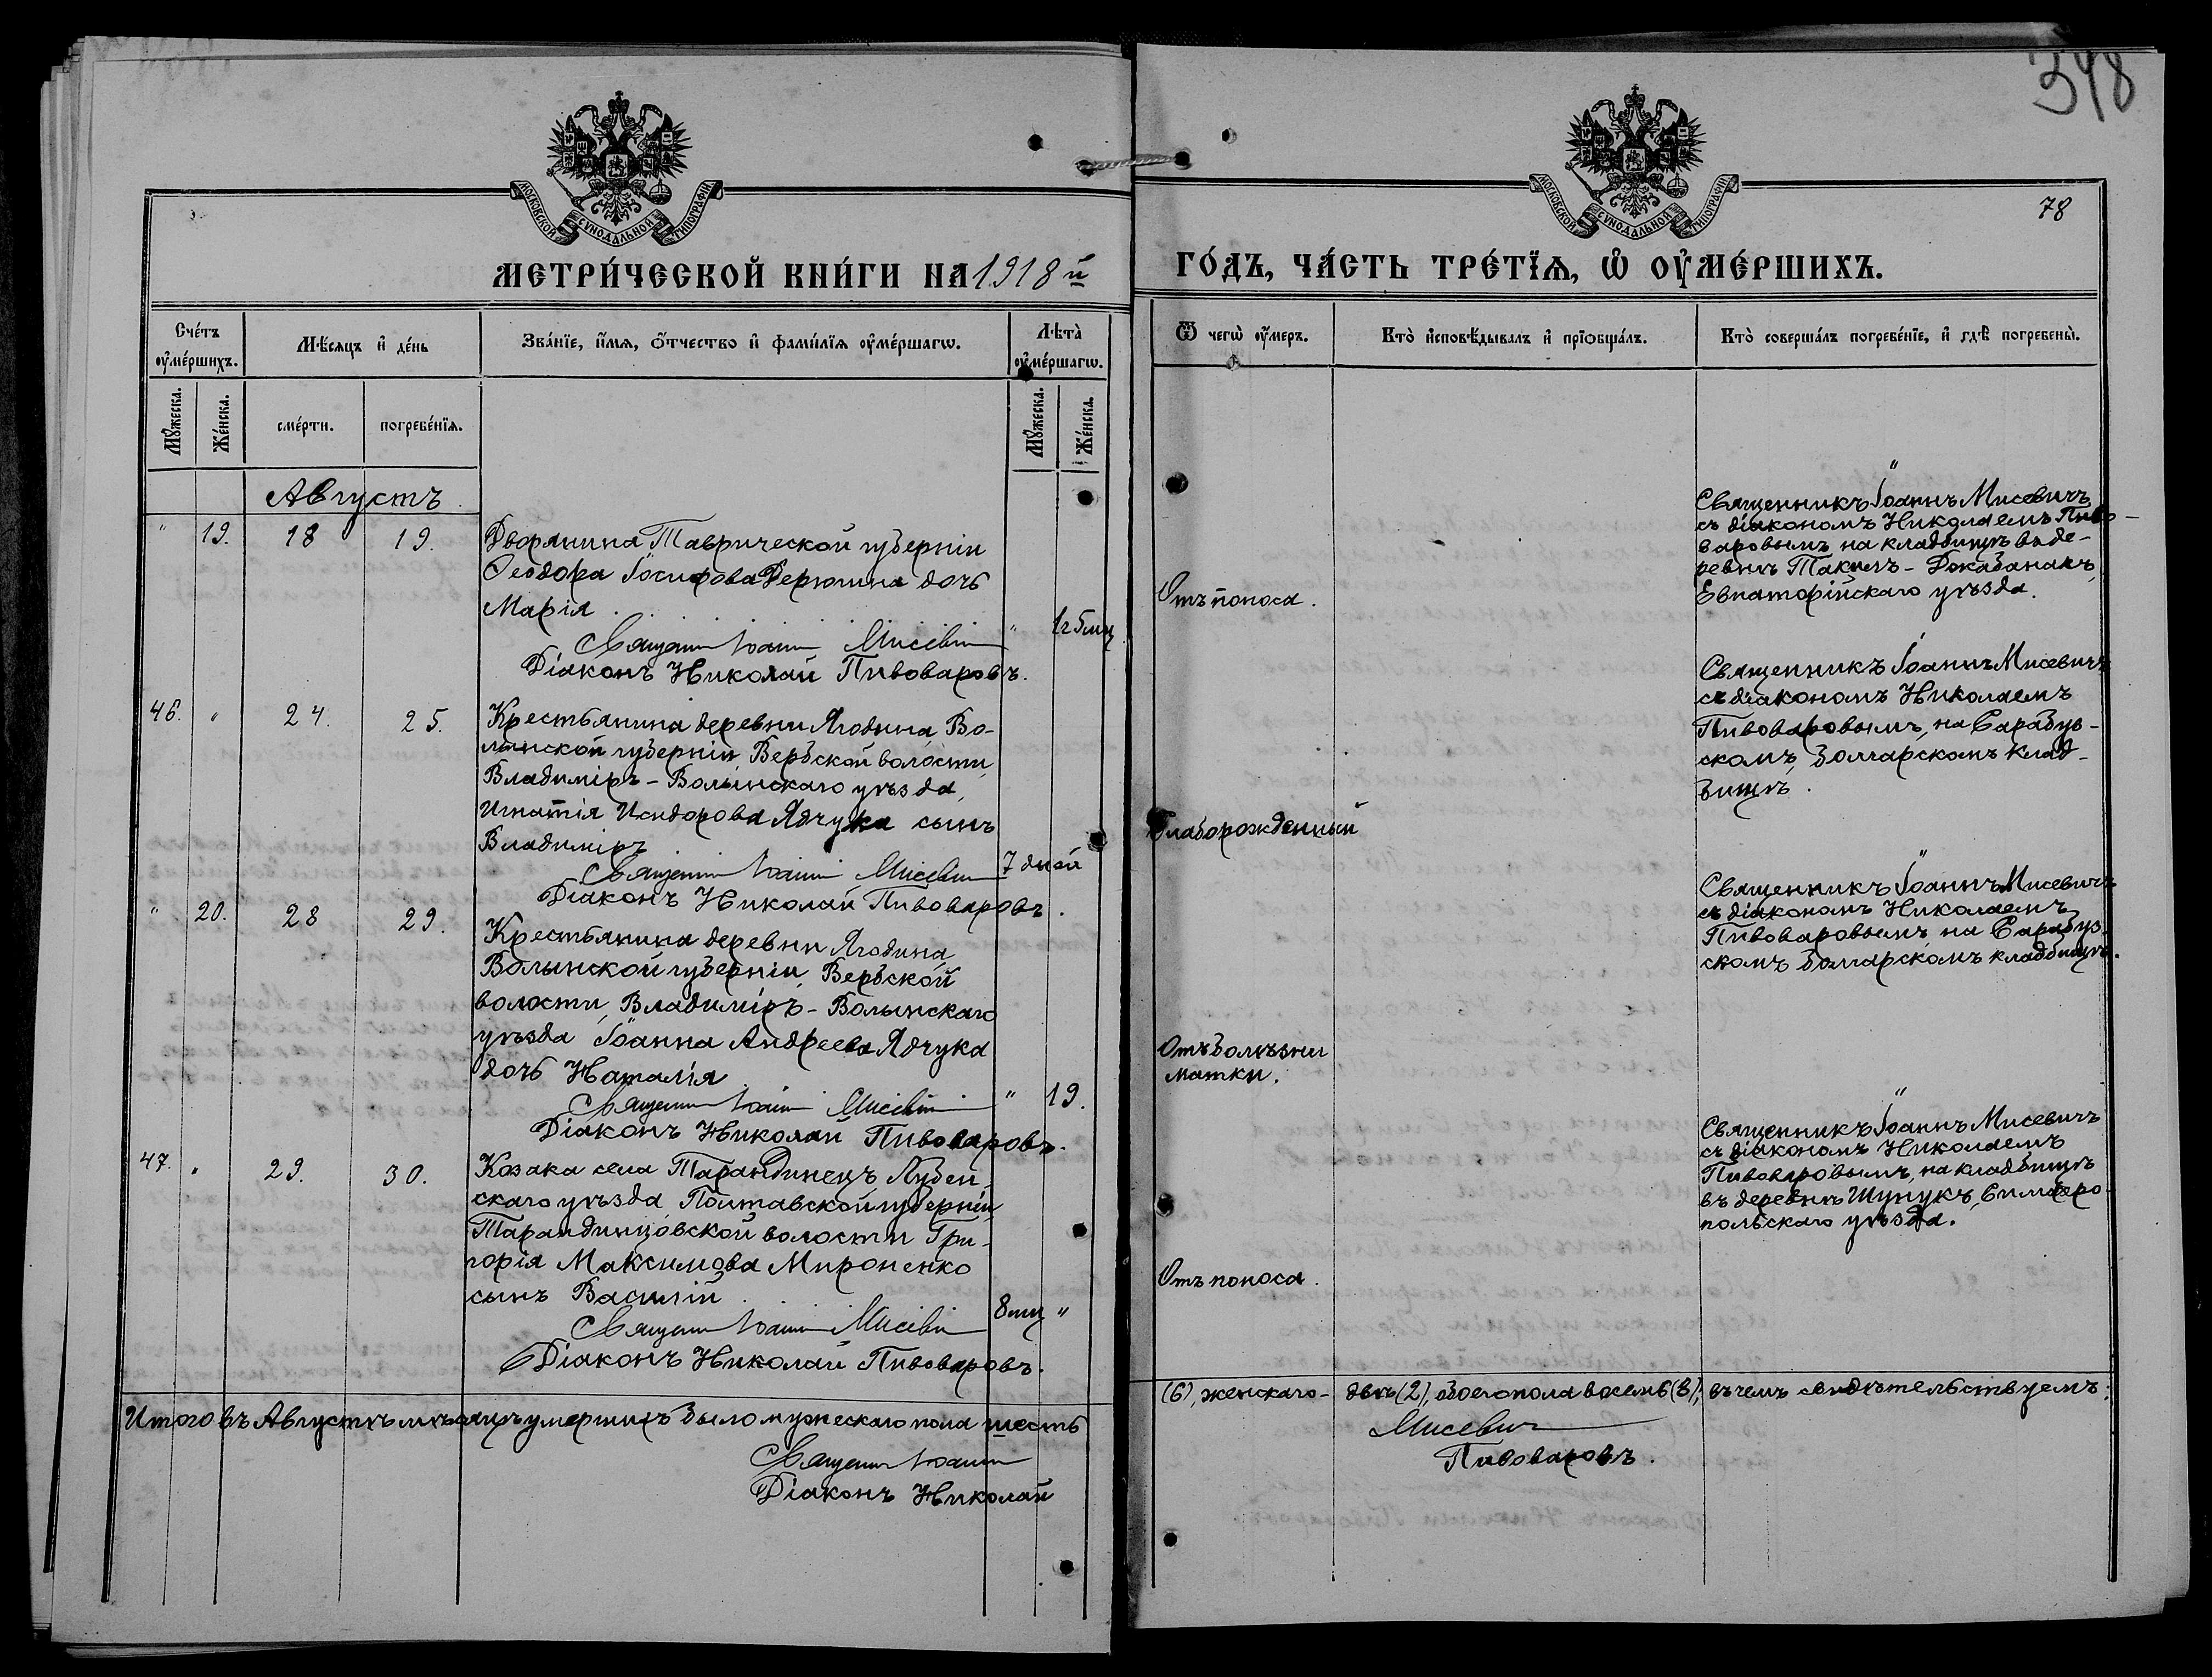 348
78
МОСКОВСКОЙ СѴНОДАЛЬНОЙ ТИПОГРАФІИ
МОСКОВСКОЙ СѴНОДАЛЬНОЙ ТИПОГРАФІИ
МЕТРИ́ЧЕСКОЙ КНИ́ГИ НА 1918й
ГО́ДЪ, ЧА́СТЬ ТРЕ́ТЇѦ, Ѡ҆ ОУ҆МЕ́РШИХЪ.
Сче́тъ оу҆ме́ршихъ.
Мѣ́сѧцъ и҆ де́нь
Зва́нїе, и҆́мѧ, ѻ҆́тчество и҆ фами́лїѧ оу҆ме́ршагѡ.
Лѣта̀ оу҆ме́ршагѡ.
Ѿ чегѡ̀ оу҆́меръ.
Кто̀ и҆сповѣ́дывалъ и҆ прїѡбща́лъ.
Кто̀ соверша́лъ погребе́нїе, и҆ гдѣ̀ погребены̀.
Мꙋ́жеска.
Же́нска.
сме́рти.
погребе́нїѧ.
Мꙋ́жеска.
Же́нска.
Августъ.
" 19. 18 19.
Дворянина Таврической губерніи
Ѳеодора Іосифова Дерюгина дочь
Марія.
" 1 г 5 мц
Священникъ Іоаннъ Мисевичъ
Діаконъ Николай Пивоваровъ.
Отъ поноса.
Священникъ Іоаннъ Мисевичъ
съ діакономъ Николаемъ Пиво-
варовымъ на кладбищѣ въ де-
ревнѣ Такилъ-Джабанакъ,
Евпаторійскаго уѣзда.
46. " 24. 25.
Крестьянина деревни Ягодина, Во-
лынской губерніи, Вербской волости,
Владиміръ-Волынскаго уѣзда,
Игнатія Исидорова Ядчука сынъ
Владиміръ
7 дней
Священникъ Іоаннъ Мисевичъ
Діаконъ Николай Пивоваровъ.
Слаборожденный
Священникъ Іоаннъ Мисевичъ
съ діакономъ Николаемъ
Пивоваровымъ, на Сарабуз-
скомъ, болгарскомъ клад-
бищѣ.
" 20. 28 29.
Крестьянина деревни Ягодина,
Волынской губерніи, Вербской
волости, Владиміръ-Волынскаго
уѣзда Іоанна Андреева Ядчука
дочь Наталія
" 19.
Священникъ Іоаннъ Мисевичъ
Діаконъ Николай Пивоваровъ.
Отъ болѣзни
матки.
Священникъ Іоаннъ Мисевичъ
съ діакономъ Николаемъ
Пивоваровымъ, на Сарабуз-
скомъ болгарскомъ кладбищѣ.
47. " 29. 30.
Козака села Тарандинецъ, Лубен-
скаго уѣзда, Полтавской губерніи,
Тарандинцовской волости Гри-
горія Максимова Мироненко
сынъ Василій.
8 мц "
Священникъ Іоаннъ Мисевичъ
Діаконъ Николай Пивоваровъ.
Отъ поноса.
Священникъ Іоаннъ Мисевичъ
съ діакономъ Николаемъ
Пивоваровымъ, на кладбищѣ
въ деревнѣ Шунукъ, Симферо-
польскаго уѣзда.
Итого въ Августѣ мѣсяцѣ умершихъ было мужескаго пола шесть
(6), женскаго - двѣ (2), обоего пола восемь (8); въ чемъ свидѣтельствуемъ:
Священникъ Іоаннъ Мисевичъ
Діаконъ Николай Пивоваровъ.